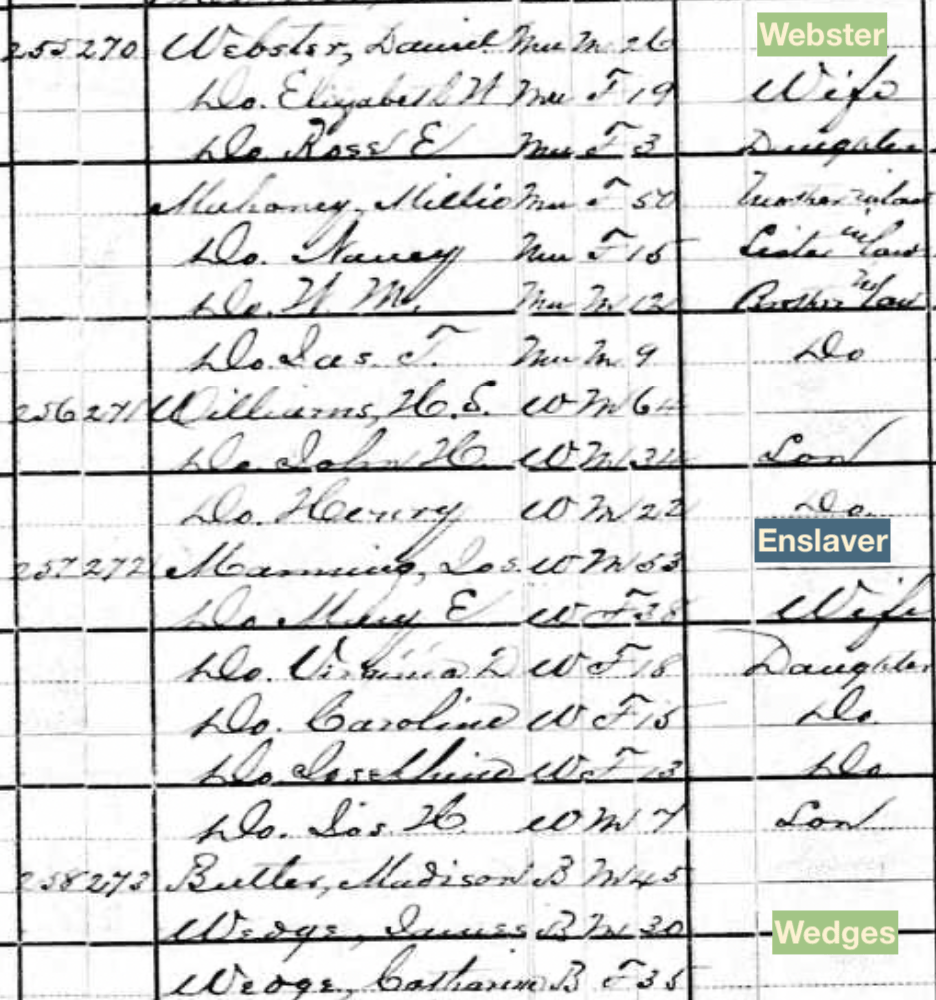 255 270 Webster, Daniel Mu M 26 Webster
Do. Elizabeth H Mu F 19 Wife
Do. Rose E Mu F 3 Daughter
Mahoney, Millie Mu F 50 Mother in law
Do. Nancy Mu F 15 Sister in law
Do. W. M. Mu M 12 Brother in law
Do. Jas. T. Mu M 9 Do
256 271 Williams, H. S. W M 64
Do. John H. W M Son
Do. Henry W M 22 Do.
Enslaver
257 272 Manning, Jos. W M 53
Do Mary E W F 38 Wife
Do. Virginia W F 18 Daughter
Do. Caroline W F 15 Do.
Do. Josephine W F 13 Do
Do. Jos H W M 7 Son
258 273 Butler, Madison B M 45
Wedge, James B M 30 Wedges
Wedge, Catharine B F 35